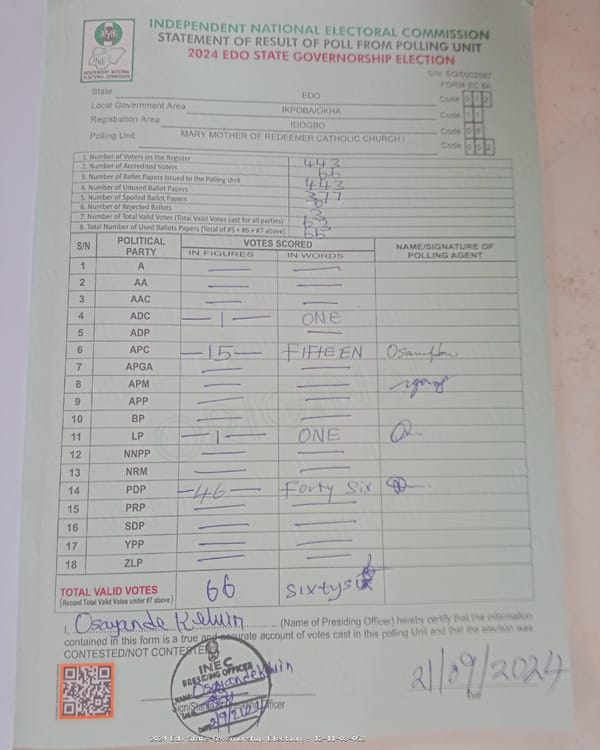 INDEPENDENT NATIONAL ELECTORAL COMMISSION
STATEMENT OF RESULT OF POLL FROM POLLING UNIT
2024 EDO STATE GOVERNORSHIP ELECTION
INEC
INDEPENDENT NATIONAL ELECTORAL COMMISSION
FORM EC 8A
State EDO Code 0 1 2
Local Government Area IKPOBA/OKHA Code 1 1
Registration Area IDOGBO Code 0 8
Polling Unit MARY MOTHER OF REDEEMER CATHOLIC CHURCH I Code
1. Number of Voters on the Register 443
2. Number of Accredited Voters 66
3. Number of Ballot Papers Issued to the Polling Unit 443
4. Number of Unused Ballot Papers 377
5. Number of Spoiled Ballot Papers 0
6. Number of Rejected Ballots 3
7. Number of Total Valid Votes (Total Valid Votes cast for all parties) 63
8. Total Number of Used Ballots Papers (Total of #5 + #6 + #7 above) 66
S/N POLITICAL PARTY VOTES SCORED NAME/SIGNATURE OF POLLING AGENT
IN FIGURES IN WORDS
1 A
2 AA
3 AAC
4 ADC —1— ONE
5 ADP
6 APC —15— FIFTEEN
7 APGA
8 APM
9 APP
10 BP
11 LP —1— ONE
12 NNPP
13 NRM
14 PDP —46— Forty Six
15 PRP
16 SDP
17 YPP
18 ZLP
TOTAL VALID VOTES 66 Sixtysix
(Record Total Valid Votes under #7 above)
I, Osayande Kelvin (Name of Presiding Officer) hereby certify that the information
contained in this form is a true and accurate account of votes cast in this polling Unit and that the election was
CONTESTED/NOT CONTESTED
INEC
PRESIDING OFFICER
Osayande Kelvin
21/09/2024
2024 Edo State Governorship Election : 12-11-08-052